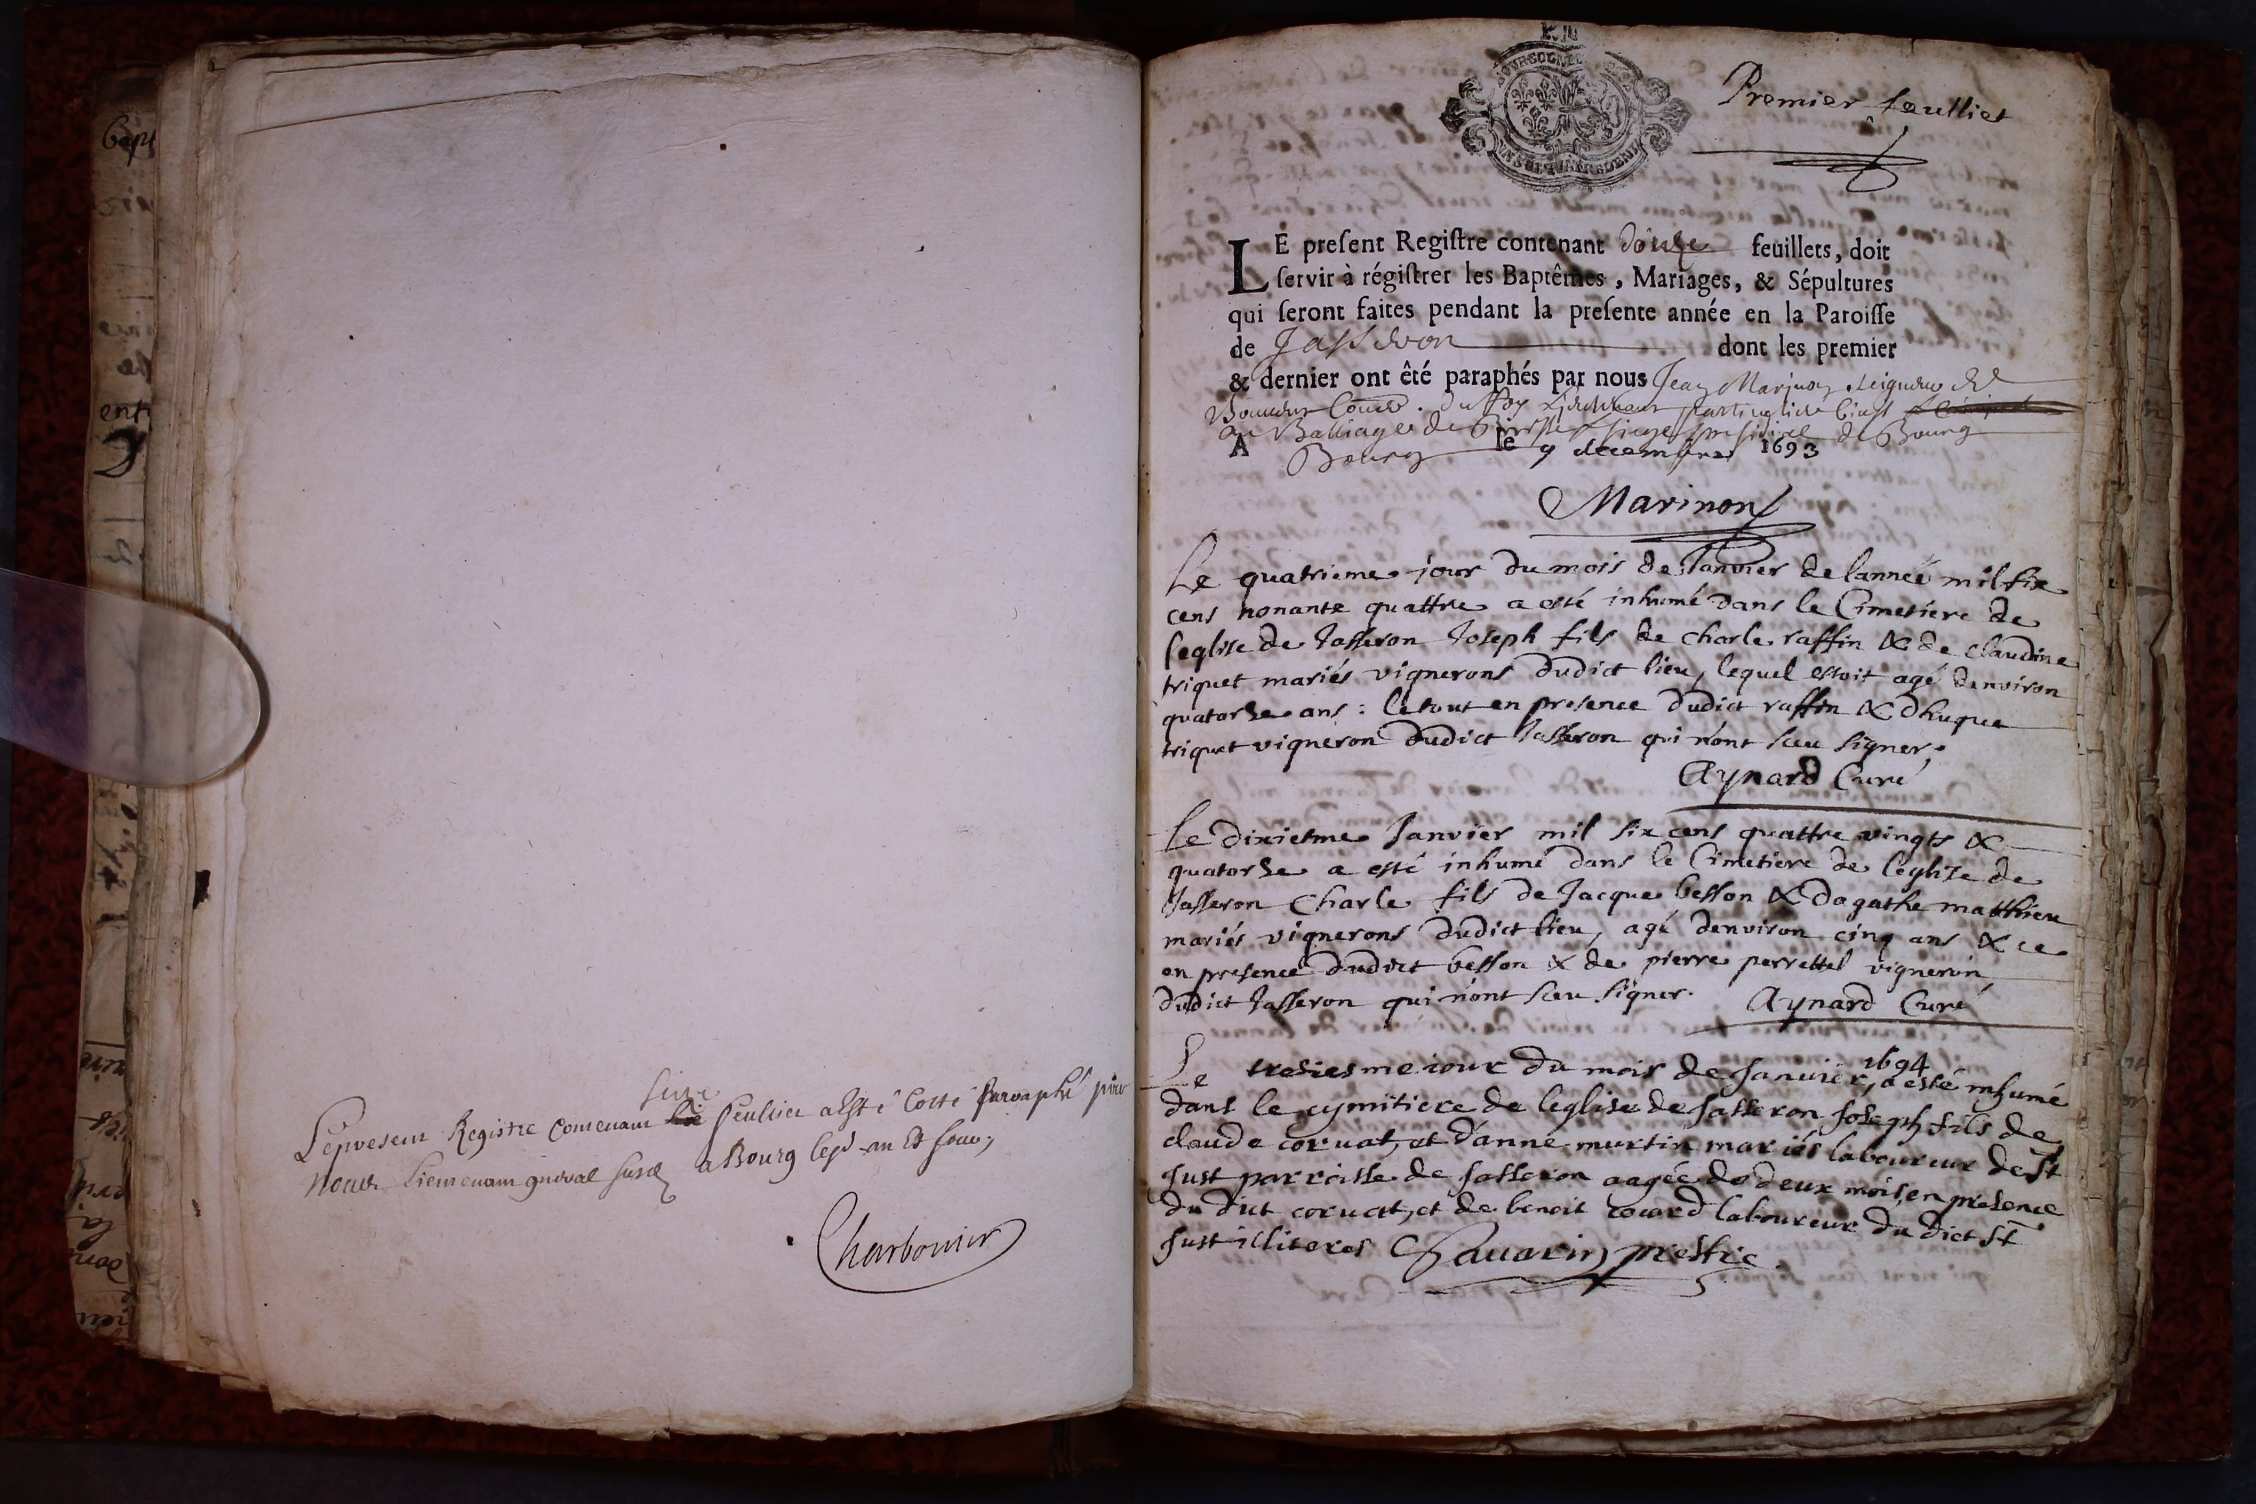 Le present Registre contenant six feullies a esté cotté paraphé par
Nous Lieutenant general susd a Bourg lesd an Et jour,
Charbonier
BOURGOGNE
Premier feulliet
LE present Registre contenant douze feuillets, doit
servir à régistrer les Baptêmes, Mariages, & Sépultures
qui seront faites pendant la presente année en la Paroisse
de Jasseron dont les premier
& dernier ont êté paraphés par nous Jean Marinon seigneur de
Conser. du Roy Lieutenant particulier
au Balliage de Bresse & siege presidial de Bourg
A Bourg le 9 decembre 1693
Marinon
Le quatrieme jour du mois de Janvier de lanneé mil six
cens nonante quattre a esté inhumé dans le Cimetiere de
leglise de Jasseron Joseph fils de charle raffin & de claudine
triquet mariés vignerons dudict lieu, lequel estoit agé denviron
quatorze ans : le tout en presence dudict raffin & dhugue
triquet vigneron dudict Jasseron qui n'ont sceu signer.
Aynard Curé
Le dixiesme Janvier mil six cens quattre vingts &
quatorze a esté inhumé dans le Cimetiere de leglise de
Jasseron Charle fils de Jacque besson & dagathe matthieu
mariés vignerons dudict lieu, agé denviron cinq ans & ce
en presence dudict besson & de pierre perrettel vigneron
dudict Jasseron qui n'ont sceu signer. Aynard Curé
Le tresiesme iour du mois de Janvier 1694, a esté inhumé
dans le cymitiere de leglise de Jasseron Joseph fils de
claude coruat, et d'anne murtin mariés laboureur de St
Just parroisse de Jasseron aagée de deux mois en presence
du dict coruat, et de benoit couard laboureur du dict St
Just illiteres Chavarin prestre